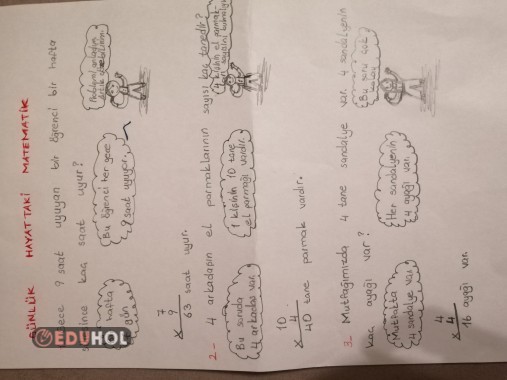 GÜNLÜK HAYATTAKİ MATEMATİK
gece 9 saat uyuyan bir öğrenci bir hafta
kaç saat uyur?
hafta
gün
Bu öğrenci her gece
9 saat uyuyor.
Problemi anladım
7
x 9
63 saat uyur.
2- 4 arkadaşın el parmaklarının sayısı kaç tanedir?
Bu sınıfta
4 arkadaş var.
1 kişinin 10 tane
el parmağı vardır.
4 kişinin el parmak-
10
x 4
40 tane parmak vardır.
3- Mutfağımızda 4 tane sandalye var. 4 sandalyenin
kaç ayağı var?
Mutfakta
4 sandalye var.
Her sandalyenin
4 ayağı var.
Bu soru çok
kolay
4
x 4
16 ayağı var.
EDUHOL